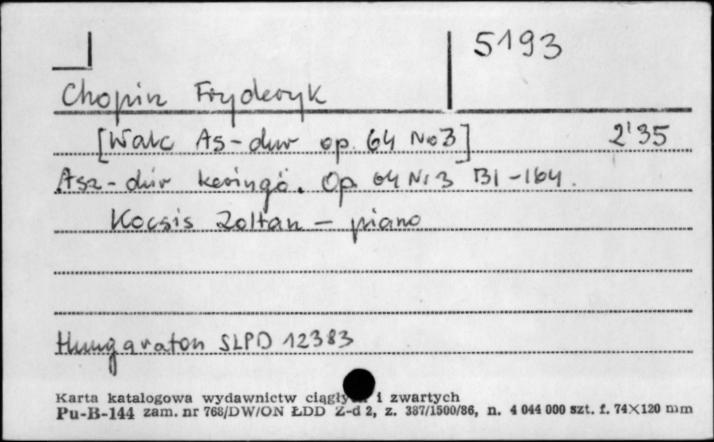 5193
Chopin Fryderyk
[Walc As-dur op. 64 No3] 2'35
Asz-dúr keringő. Op 64 Nr3 BI-164.
Kocsis Zoltan - piano
Hungaraton SLPD 12383
Karta katalogowa wydawnictw i zwartych
Pu-B-144 zam. nr 768/DW/ON ŁDD Z-d 2, z. 387/1500/86, n. 4 044 000 szt. f. 74×120 mm